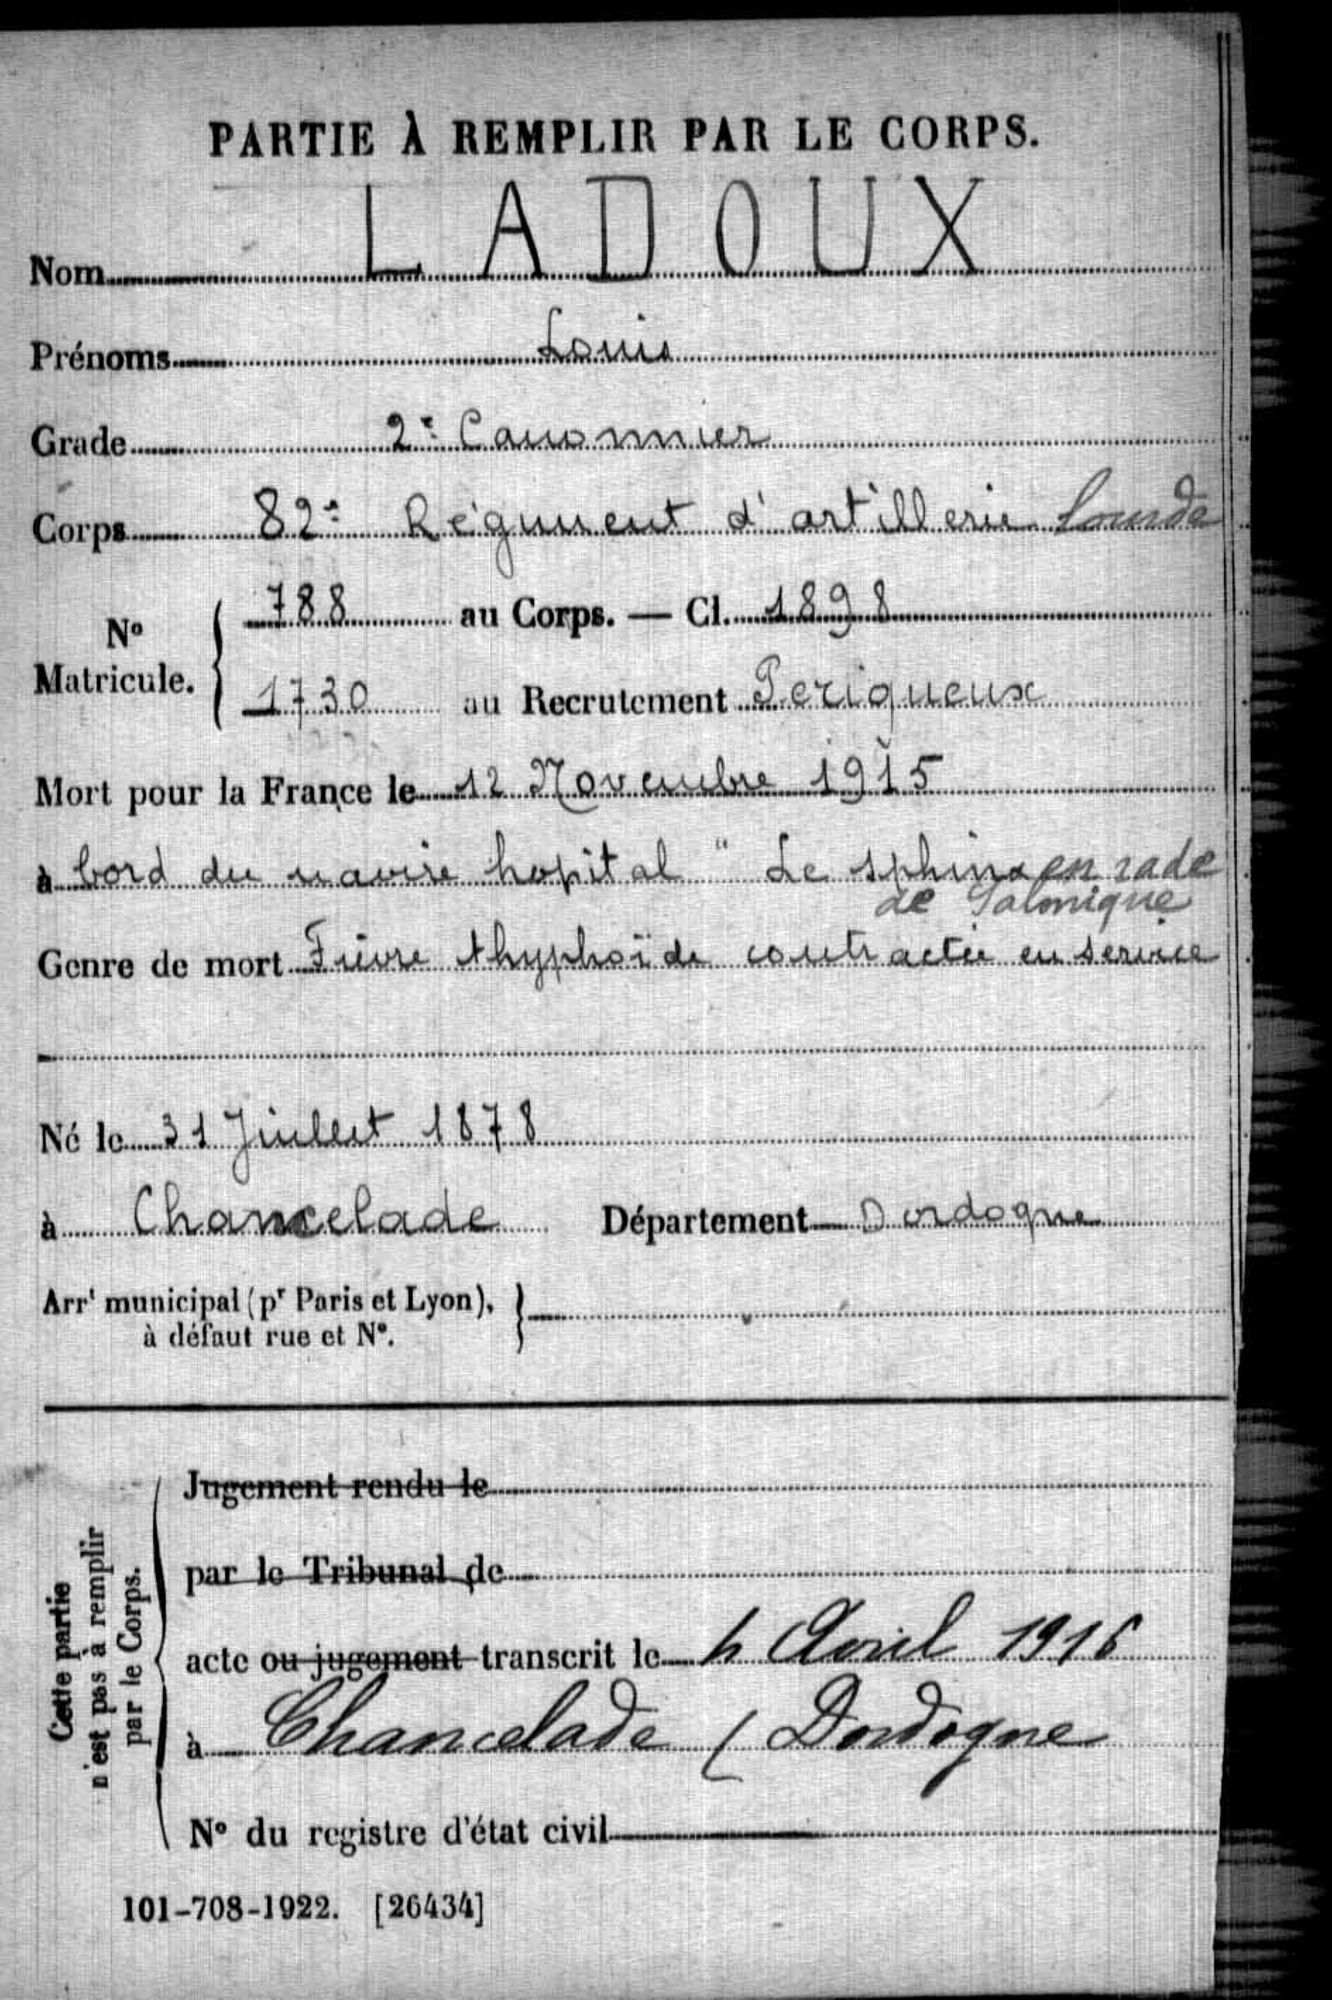 PARTIE À REMPLIR PAR LE CORPS.
Nom LADOUX
Prénoms Louis
Grade 2e Canonnier
Corps 82e Régiment d'artillerie lourde
N° Matricule. 788 au Corps. — Cl. 1898
1730 au Recrutement Perigueux
Mort pour la France le 12 Novembre 1915
à bord du navire hopital " Le sphinx en rade
de Salonique
Genre de mort Fièvre thyphoïde contractée en service
Né le 31 Juillet 1878
à Chancelade Département Dordogne
Arrt municipal (pr Paris et Lyon),
à défaut rue et N°.
Cette partie
n'est pas à remplir
par le Corps.
Jugement rendu le
par le Tribunal de
acte ou jugement transcrit le 4 Avril 1916
à Chancelade ( Dordogne
N° du registre d'état civil
101-708-1922. [26434]